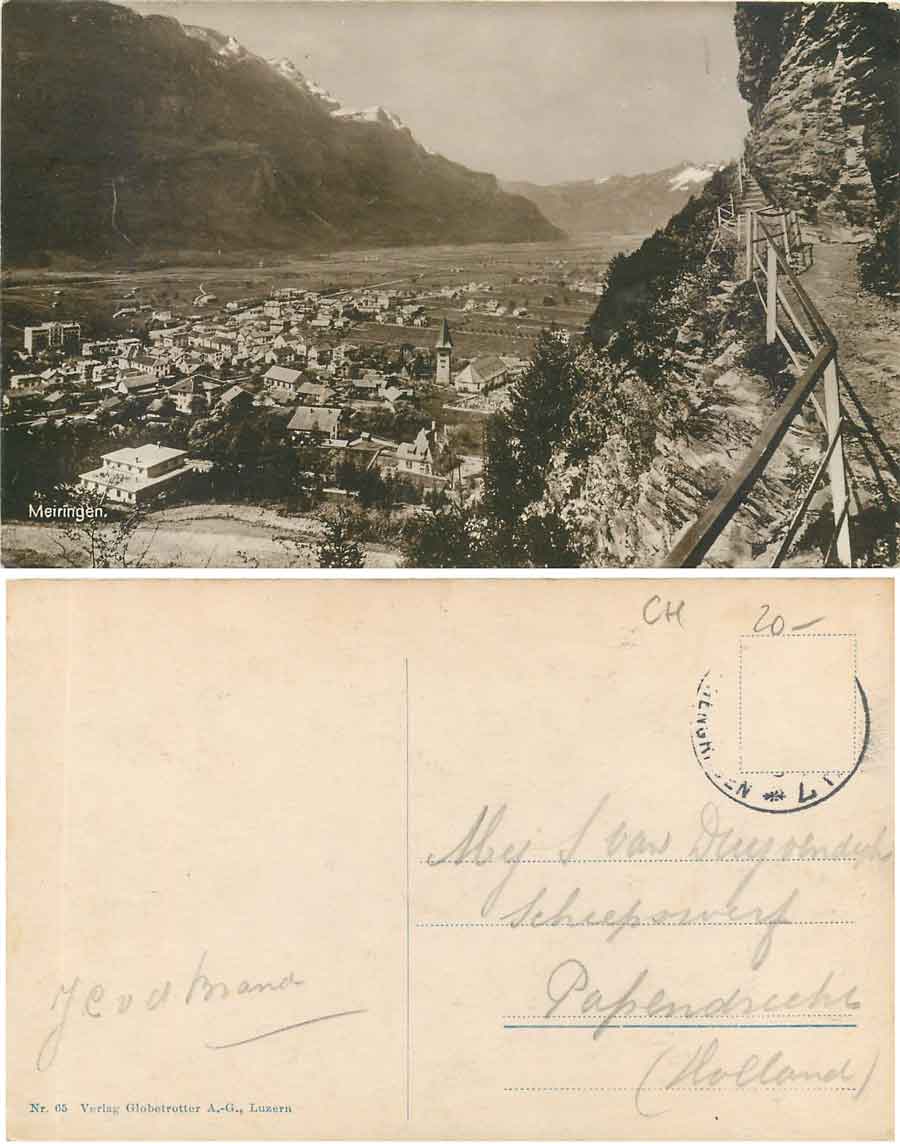 Meiringen.
CH 20-
Mej S van Duyvendijk
Scheepswerf
Papendrecht
(Holland)
J C v d Brand
Nr. 65 Verlag Globetrotter A.-G., Luzern